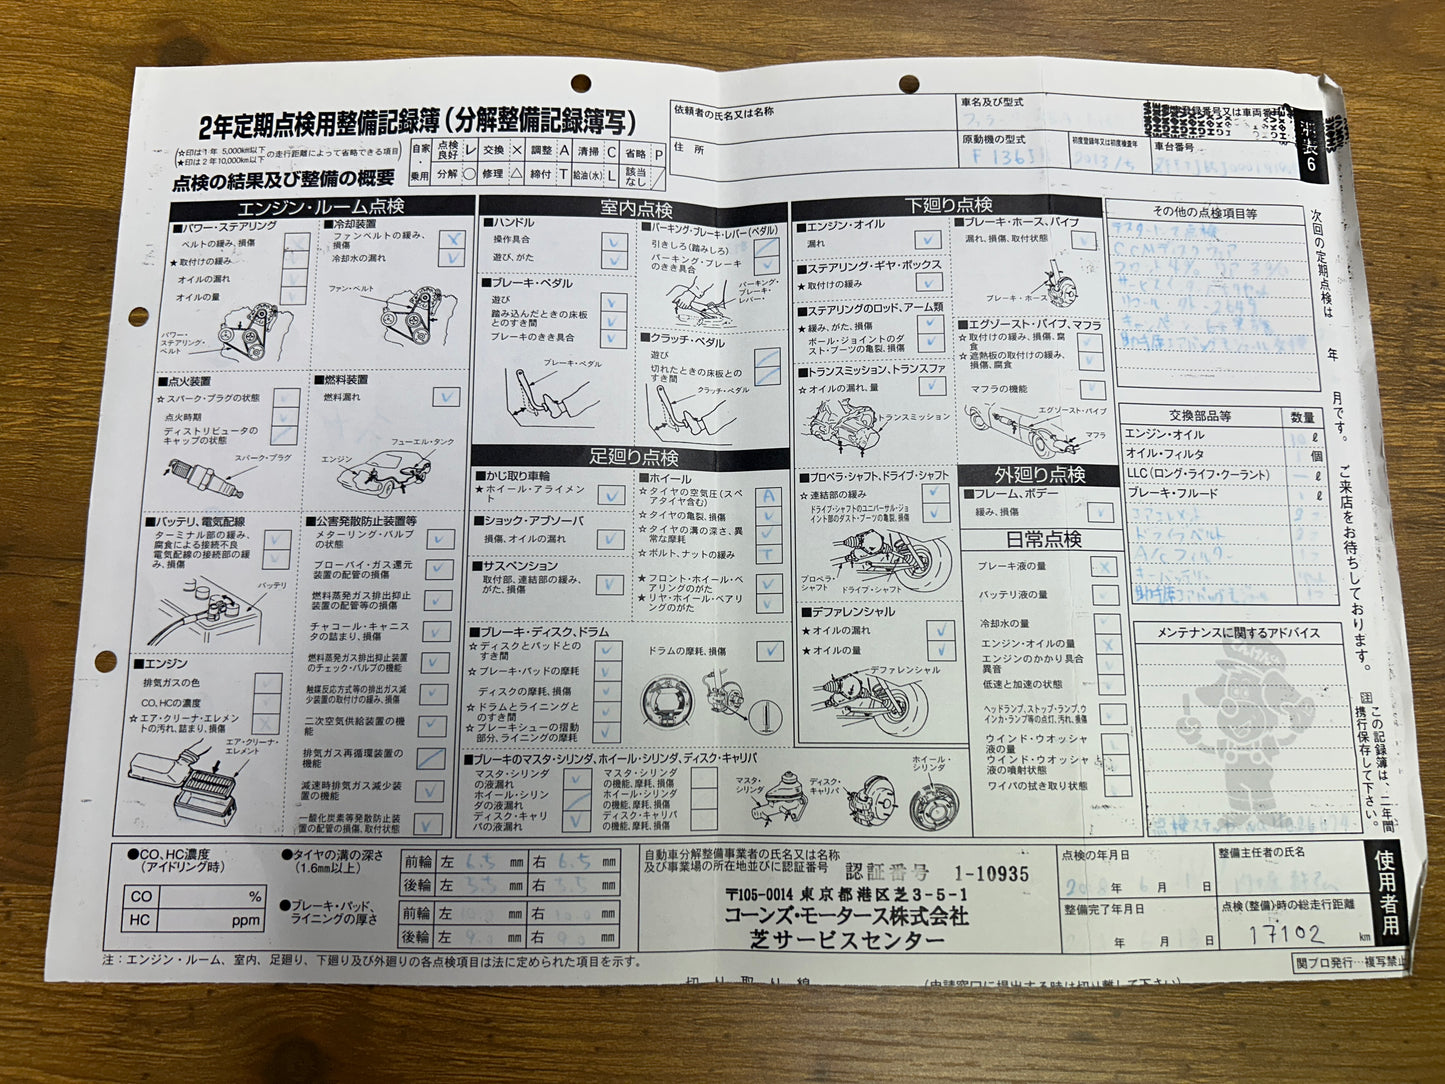 2年定期点検用整備記録簿(分解整備記録簿写)
☆印は1年 5,000km以下
★印は2年10,000km以下
の走行距離によって省略できる項目
点検の結果及び整備の概要
自家
乗用
点検良好 レ 交換 × 調整 A 清掃 C 省略 P
分解 ○ 修理 △ 締付 T 給油(水) L 該当なし ╱
依頼者の氏名又は名称
住 所
車名及び型式
原動機の型式
F 136
初度登録年又は初度検査年
2013/5
車台番号
別表6
エンジン・ルーム点検
■パワー・ステアリング
ベルトの緩み、損傷
★取付けの緩み
オイルの漏れ
オイルの量
パワー・ステアリング・ベルト
■冷却装置
ファンベルトの緩み、損傷
冷却水の漏れ
ファン・ベルト
■点火装置
☆スパーク・プラグの状態
点火時期
ディストリビュータのキャップの状態
スパーク・プラグ
■燃料装置
燃料漏れ
フューエル・タンク
エンジン
■バッテリ、電気配線
ターミナル部の緩み、腐食による接続不良
電気配線の接続部の緩み、損傷
バッテリ
■公害発散防止装置等
メターリング・バルブの状態
ブローバイ・ガス還元装置の配管の損傷
燃料蒸発ガス排出抑止装置の配管等の損傷
チャコール・キャニスタの詰まり、損傷
燃料蒸発ガス排出抑止装置のチェック・バルブの機能
触媒反応方式等の排出ガス減少装置の取付けの緩み、損傷
二次空気供給装置の機能
排気ガス再循環装置の機能
減速時排気ガス減少装置の機能
一酸化炭素等発散防止装置の配管の損傷、取付状態
■エンジン
排気ガスの色
CO、HCの濃度
☆エア・クリーナ・エレメントの汚れ、詰まり、損傷
エア・クリーナ・エレメント
室内点検
■ハンドル
操作具合
遊び、がた
■ブレーキ・ペダル
遊び
踏み込んだときの床板とのすき間
ブレーキのきき具合
ブレーキ・ペダル
■パーキング・ブレーキ・レバー(ペダル)
引きしろ(踏みしろ)
パーキング・ブレーキのきき具合
パーキング・ブレーキ・レバー・
■クラッチ・ペダル
遊び
切れたときの床板とのすき間
クラッチ・ペダル
足廻り点検
■かじ取り車輪
★ホイール・アライメント
■ショック・アブソーバ
損傷、オイルの漏れ
■サスペンション
取付部、連結部の緩み、がた、損傷
■ホイール
☆タイヤの空気圧(スペアタイヤ含む) A
☆タイヤの亀裂、損傷
☆タイヤの溝の深さ、異常な摩耗
☆ボルト、ナットの緩み T
★フロント・ホイール・ベアリングのがた
★リヤ・ホイール・ベアリングのがた
■ブレーキ・ディスク、ドラム
☆ディスクとパッドとのすき間
☆ブレーキ・パッドの摩耗
ディスクの摩耗、損傷
☆ドラムとライニングとのすき間
☆ブレーキシューの摺動部分、ライニングの摩耗
ドラムの摩耗、損傷
■ブレーキのマスタ・シリンダ、ホイール・シリンダ、ディスク・キャリパ
マスタ・シリンダの液漏れ
ホイール・シリンダの液漏れ
ディスク・キャリパの液漏れ
マスタ・シリンダの機能、摩耗、損傷
ホイール・シリンダの機能、摩耗、損傷
ディスク・キャリパの機能、摩耗、損傷
マスタ・シリンダ
ディスク・キャリパ
ホイール・シリンダ
下廻り点検
■エンジン・オイル
漏れ
■ステアリング・ギヤ・ボックス
★取付けの緩み
■ステアリングのロッド、アーム類
★緩み、がた、損傷
ボール・ジョイントのダスト・ブーツの亀裂、損傷
■トランスミッション、トランスファ
☆オイルの漏れ、量
トランスミッション
■プロペラ・シャフト、ドライブ・シャフト
☆連結部の緩み
ドライブ・シャフトのユニバーサル・ジョイント部のダスト・ブーツの亀裂、損傷
プロペラ・シャフト
ドライブ・シャフト
■デファレンシャル
★オイルの漏れ
★オイルの量
デファレンシャル
■ブレーキ・ホース、パイプ
漏れ、損傷、取付状態
ブレーキ・ホース
■エグゾースト・パイプ、マフラ
☆取付けの緩み、損傷、腐食
☆遮熱板の取付けの緩み、損傷、腐食
マフラの機能
エグゾースト・パイプ
マフラ
外廻り点検
■フレーム、ボデー
緩み、損傷
日常点検
ブレーキ液の量
バッテリ液の量
冷却水の量
エンジン・オイルの量
エンジンのかかり具合異音
低速と加速の状態
ヘッドランプ、ストップ・ランプ、ウインカ・ランプ等の点灯、汚れ、損傷
ウインド・ウオッシャ液の量
ウインド・ウオッシャ液の噴射状態
ワイパの拭き取り状態
その他の点検項目等
交換部品等 数量
エンジン・オイル 10 ℓ
オイル・フィルタ 個
LLC(ロング・ライフ・クーラント) ℓ
ブレーキ・フルード ℓ
ドライブベルト
A/Cフィルター
メンテナンスに関するアドバイス
次回の定期点検は 年 月です。ご来店をお待ちしております。
注 この記録簿は、二年間携行保存して下さい。
使用者用
●CO、HC濃度(アイドリング時)
CO %
HC ppm
●タイヤの溝の深さ(1.6mm以上)
前輪 左 6.5 mm 右 6.5 mm
後輪 左 5.5 mm 右 5.5 mm
●ブレーキ・パッド、ライニングの厚さ
前輪 左 10.0 mm 右 10.0 mm
後輪 左 9.0 mm 右 9.0 mm
自動車分解整備事業者の氏名又は名称及び事業場の所在地並びに認証番号
認証番号 1-10935
〒105-0014 東京都港区芝3-5-1
コーンズ・モータース株式会社
芝サービスセンター
点検の年月日
年 6 月 日
整備完了年月日
年 月 日
整備主任者の氏名
点検(整備)時の総走行距離
17102 km
注:エンジン・ルーム、室内、足廻り、下廻り及び外廻りの各点検項目は法に定められた項目を示す。
関プロ発行…複写禁止
切 り 取 り 線
(申請窓口に提出する時は切り離して下さい)